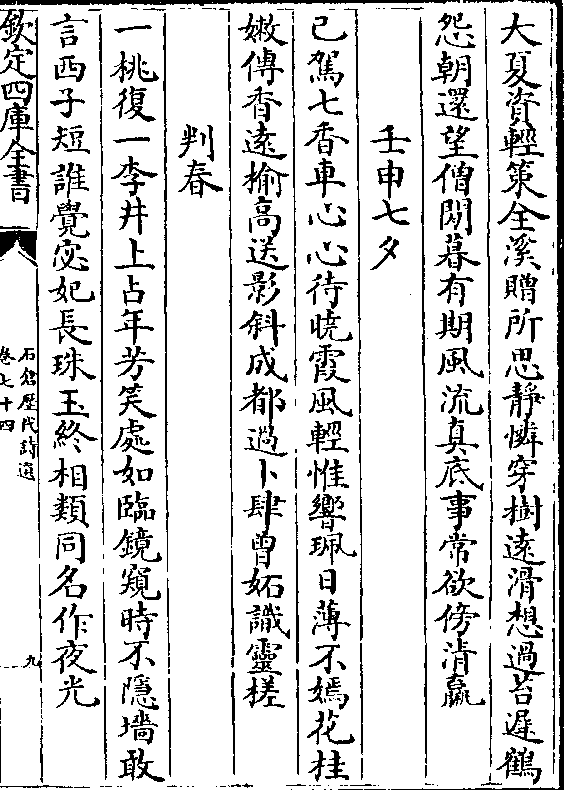 大夏資輕策全溪贈所思靜憐穿樹遠滑想過苔遲鶴
怨朝還望僧閒暮有期風流真底事常欲傍清羸
壬申七夕
已駕七香車心心待曉霞風輕惟響珮日薄不嫣花桂
嫩傳香遠榆高送影斜成都過卜肆曾妬識靈槎
判春
一桃復一李井上占年芳笑處如臨鏡窺時不隱墻敢
言西子短誰覺宓妃長珠玉終相類同名作夜光
欽定四庫全書
石倉歷代詩選
卷七十四
九